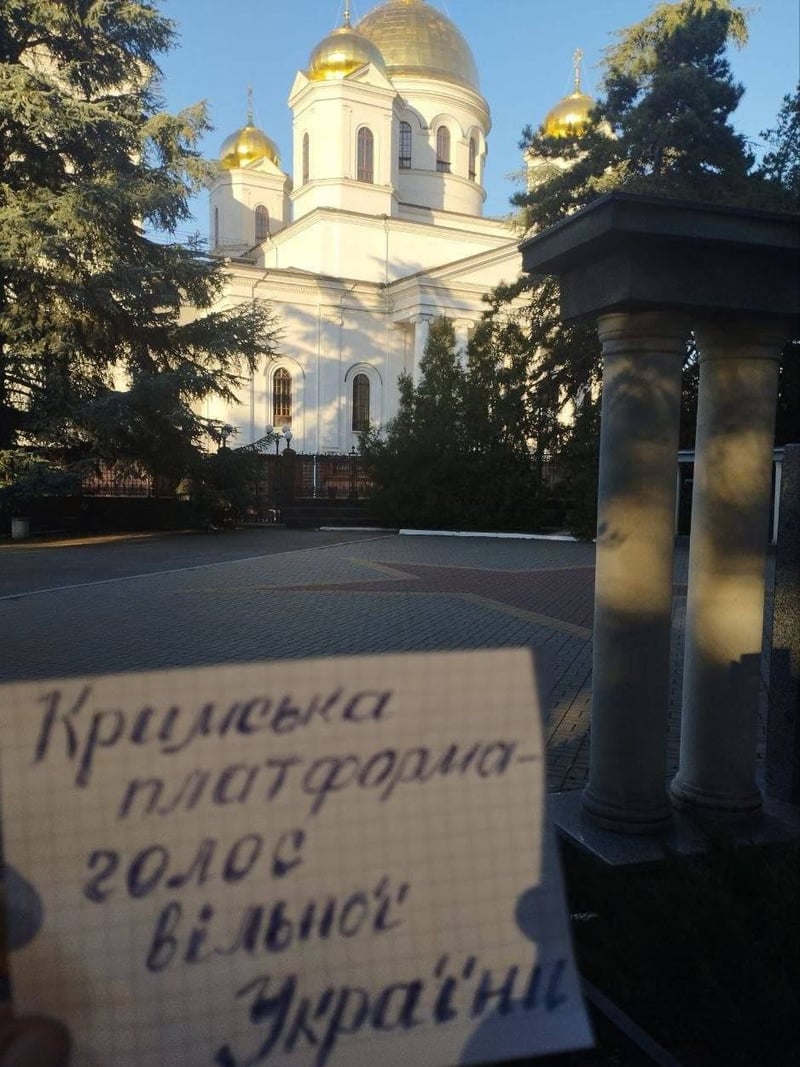 Кримська
платформа-
голос
вільної
України